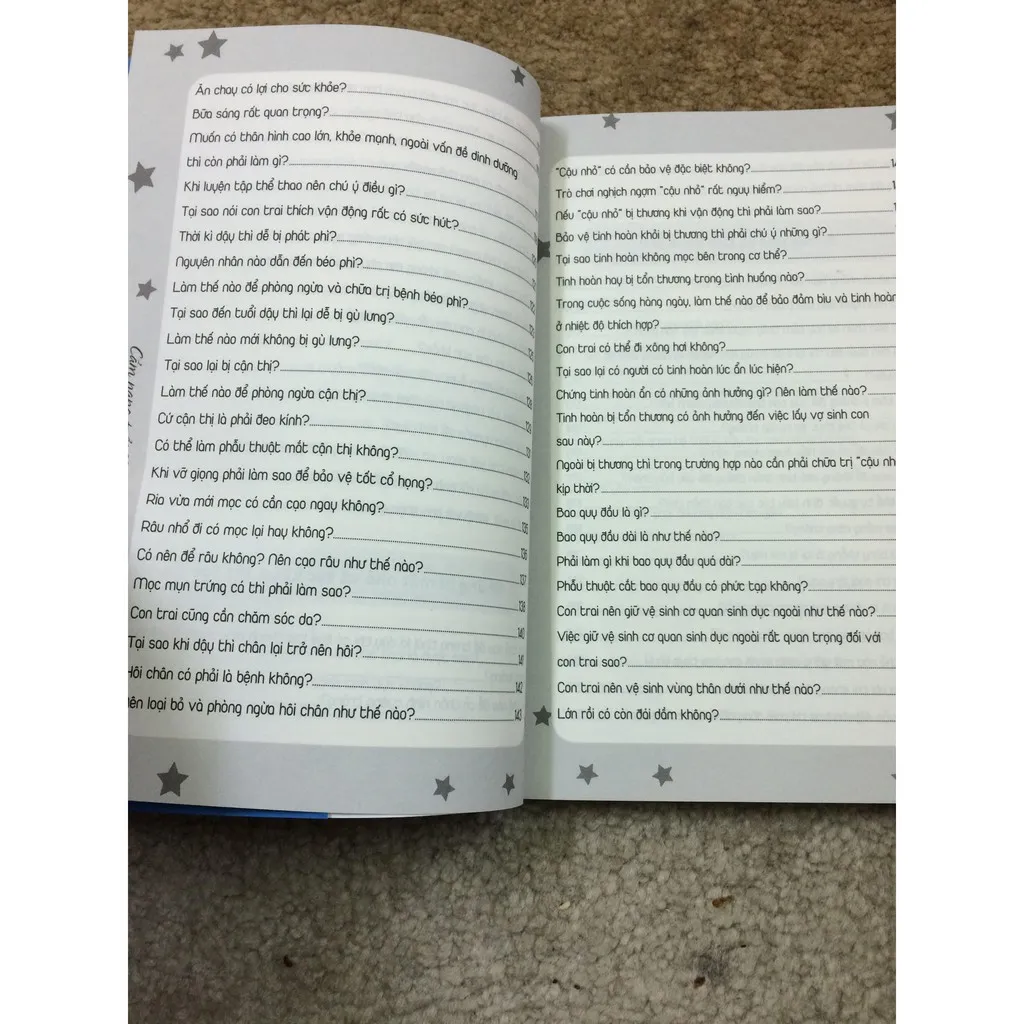 Ăn chay có lợi cho sức khỏe?
Bữa sáng rất quan trọng?
Muốn có thân hình cao lớn, khỏe mạnh, ngoài vấn đề dinh dưỡng
thì còn phải làm gì?
Khi luyện tập thể thao nên chú ý điều gì?
Tại sao nói con trai thích vận động rất có sức hút?
Thời kì dậy thì dễ bị phát phì?
Nguyên nhân nào dẫn đến béo phì?
Làm thế nào để phòng ngừa và chữa trị bệnh béo phì?
Tại sao đến tuổi dậy thì lại dễ bị gù lưng?
Làm thế nào mới không bị gù lưng?
Tại sao lại bị cận thị?
Làm thế nào để phòng ngừa cận thị?
Cứ cận thị là phải đeo kính? 129
Có thể làm phẫu thuật mắt cận thị không? 131
Khi vỡ giọng phải làm sao để bảo vệ tốt cổ họng? 132
Ria vừa mới mọc có cần cạo ngay không? 133
Râu nhổ đi có mọc lại hay không? 135
Có nên để râu không? Nên cạo râu như thế nào? 136
Mọc mụn trứng cá thì phải làm sao? 137
Con trai cũng cần chăm sóc da? 138
Tại sao khi dậy thì chân lại trở nên hôi? 140
Hôi chân có phải là bệnh không? 141
loại bỏ và phòng ngừa hôi chân như thế nào? 142
143
Cẩm nang
"Cậu nhỏ" có cần bảo vệ đặc biệt không?
Trò chơi nghịch ngợm "cậu nhỏ" rất nguy hiểm?
Nếu "cậu nhỏ" bị thương khi vận động thì phải làm sao?
Bảo vệ tinh hoàn khỏi bị thương thì phải chú ý những gì?
Tại sao tinh hoàn không mọc bên trong cơ thể?
Tinh hoàn hay bị tổn thương trong tình huống nào?
Trong cuộc sống hàng ngày, làm thế nào để bảo đảm bìu và tinh hoàn
ở nhiệt độ thích hợp?
Con trai có thể đi xông hơi không?
Tại sao lại có người có tinh hoàn lúc ẩn lúc hiện?
Chứng tinh hoàn ẩn có những ảnh hưởng gì? Nên làm thế nào?
Tinh hoàn bị tổn thương có ảnh hưởng đến việc lấy vợ sinh con
sau này?
Ngoài bị thương thì trong trường hợp nào cần phải chữa trị "cậu
kịp thời?
Bao quy đầu là gì?
Bao quy đầu dài là như thế nào?
Phải làm gì khi bao quy đầu quá dài?
Phẫu thuật cắt bao quy đầu có phức tạp không?
Con trai nên giữ vệ sinh cơ quan sinh dục ngoài như thế nào?
Việc giữ vệ sinh cơ quan sinh dục ngoài rất quan trọng đối với
con trai sao?
Con trai nên vệ sinh vùng thân dưới như thế nào?
Lớn rồi có còn đái dầm không?